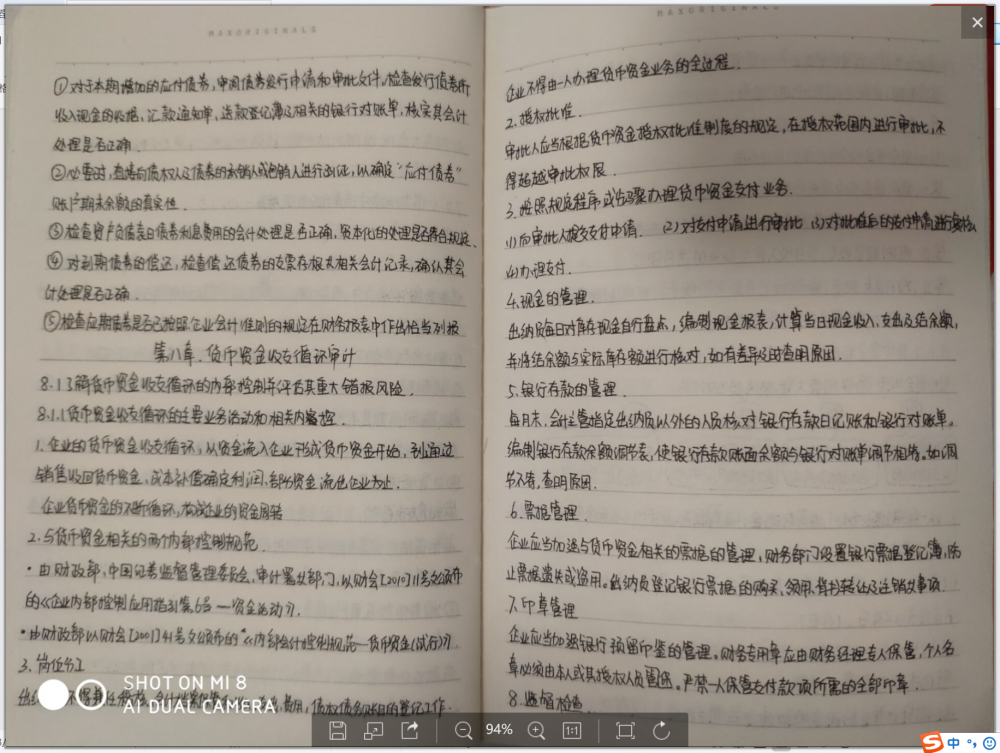 MAXORIGINALS
①对于本期增加的应付债券,审阅债券发行申请和审批文件,检查发行债券所
收入现金的收据、汇款通知单、送款登记簿及相关的银行对账单,核实其会计
处理是否正确.
②必要时,直接向债权人及债券的承销人或包销人进行函证,以确定“应付债券”
账户期末余额的真实性.
③检查资产负债表日债券利息费用的会计处理是否正确,资本化的处理是否符合规定、
④对到期债券的偿还,检查偿还债券的支票存根等相关会计记录,确认其会
计处理是否正确.
⑤检查应付债券是否已按照企业会计准则的规定在财务报表中作出恰当列报
第八章.货币资金收支循环审计
8.1了解货币资金收支循环的内部控制并评估其重大错报风险.
8.1.1货币资金收支循环的主要业务活动和相关内部控.
1.企业的货币资金收支循环,从资金流入企业形成货币资金开始,到通过
销售收回货币资金,成本补偿确定利润,部分资金流出企业为止.
企业货币资金的不断循环,构成企业的资金周转
2.与货币资金相关的两个内部控制规范.
·由财政部,中国证券监督管理委员会,审计署等部门,以财会[2010]11号文颁布
的《企业内部控制应用指引第6号—资金活动》.
·由财政部以财会[2001]41号文公颁布的“《内部会计控制规范—货币资金(试行)》.
3.岗位分工
费用,债权债务账目的登记工作.
SHOT ON MI 8
AI DUAL CAMERA
MAXORIGINALS
企业不得由一人办理货币资金业务的全过程.
2.授权批准.
审批人应当根据货币资金授权批准制度的规定,在授权范围内进行审批,不
得超越审批权限.
3.按照规定程序或步骤办理货币资金支付业务.
(1)向审批人提交支付申请. (2)对支付申请进行审批 (3)对批准后的支付申请进行复核
(4)办理支付.
4.现金的管理.
出纳员每日对库存现金自行盘点,编制现金报表,计算当日现金收入、支出及结余额,
并将结余额与实际库存额进行核对,如有差异及时查明原因.
5.银行存款的管理.
每月末,会计主管指定出纳员以外的人员核对银行存款日记账和银行对账单.
编制银行存款余额调节表,使银行存款账面余额与银行对账单调节相符.如调
节不符,查明原因.
6.票据管理.
企业应当加强与货币资金相关的票据的管理,财务部门设置银行票据登记簿,防
止票据遗失或盗用.出纳员登记银行票据的购买、领用、背书转让及注销等事项.
7.印章管理
企业应当加强银行预留印鉴的管理.财务专用章应由财务经理专人保管,个人名
章必须由本人或其授权人员管理.严禁一人保管支付款项所需的全部印章.
8.监督检查
94%
1:1
中